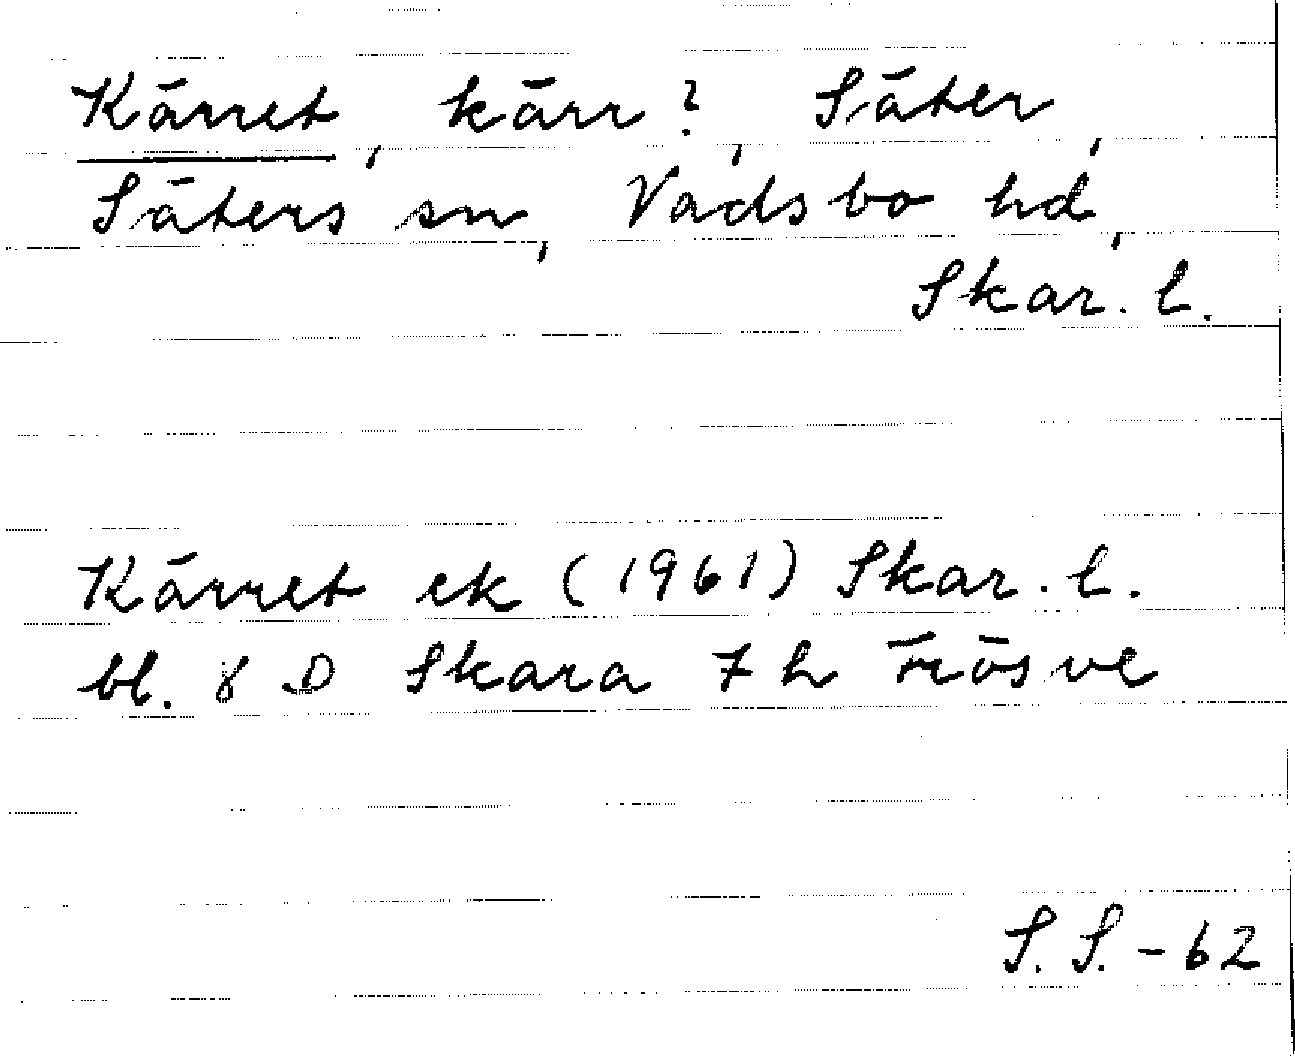 Kärret, kärr?, Säter,
Säters sn, Vadsbo hd,
Skar. l.
Kärret ek (1961) Skar. l.
bl. 8 D Skara 7 h Frösve
S. S. - 62